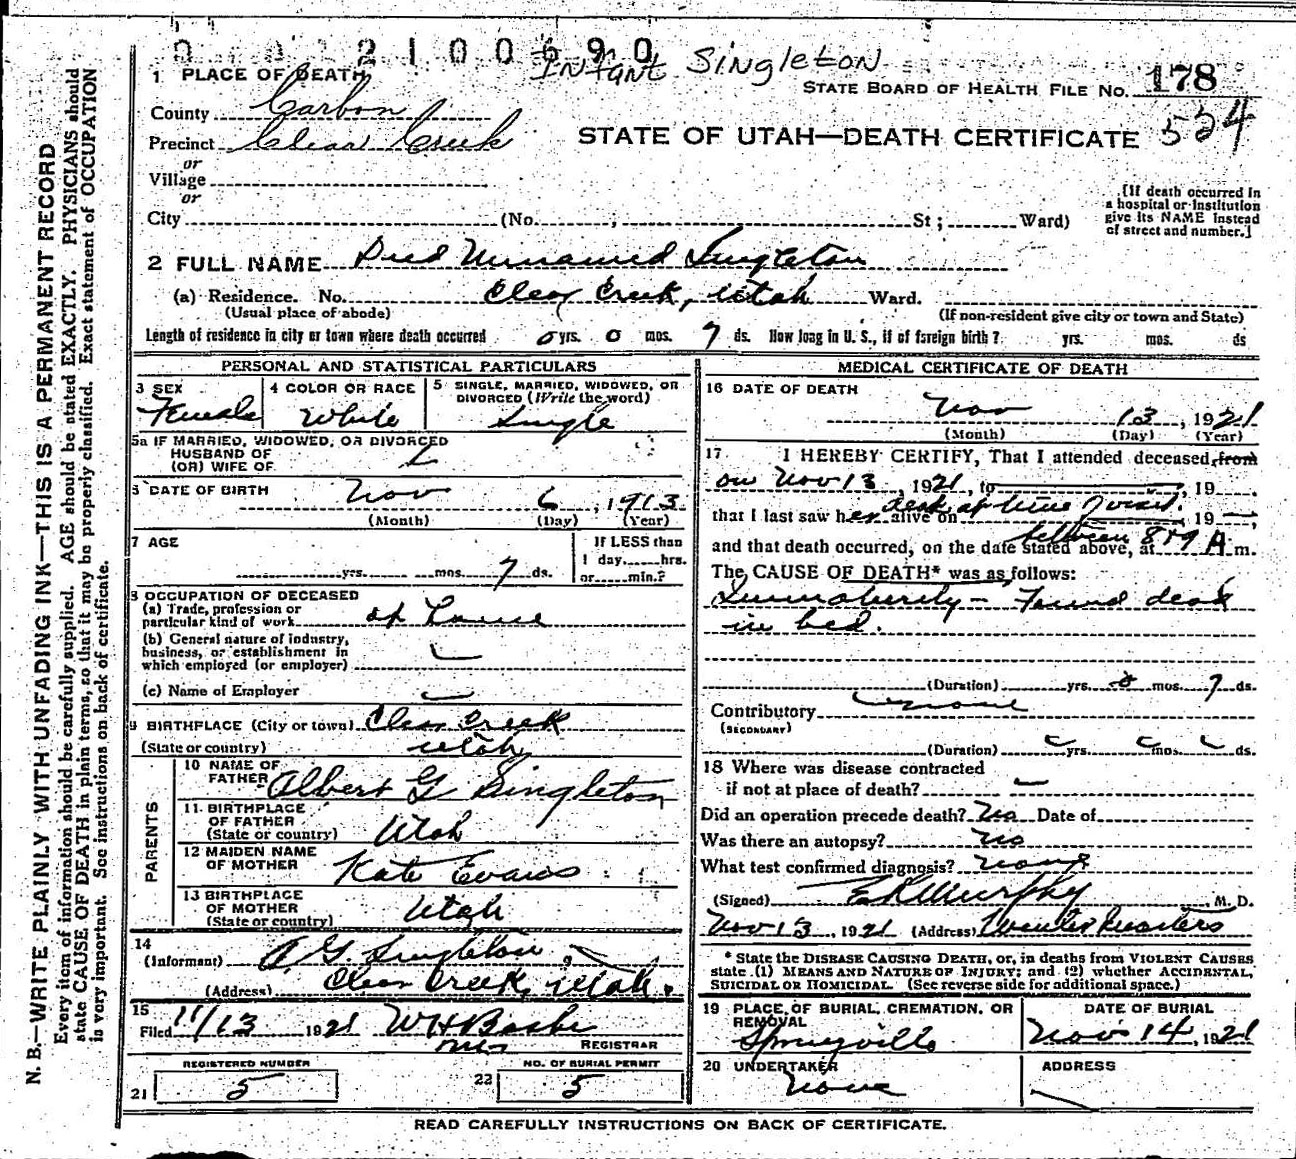 2100690
Infant Singleton
1 PLACE OF DEATH
STATE BOARD OF HEALTH FILE NO. 178
County Carbon
534
Precinct Clear Creek
STATE OF UTAH—DEATH CERTIFICATE
or
Village
or
City (No. ; St; Ward)
[If death occurred in
a hospital or institution
give its NAME instead
of street and number.]
2 FULL NAME Died Unnamed Singleton
(a) Residence. No. Clear Creek, Utah Ward.
(Usual place of abode)
(If non-resident give city or town and State)
Length of residence in city or town where death occurred 0 yrs. 0 mos. 7 ds. How long in U. S., if of foreign birth? yrs. mos. ds
PERSONAL AND STATISTICAL PARTICULARS
3 SEX
Female
4 COLOR OR RACE
White
5 SINGLE, MARRIED, WIDOWED, OR
DIVORCED (Write the word)
Single
5a IF MARRIED, WIDOWED, OR DIVORCED
HUSBAND OF
(OR) WIFE OF
DATE OF BIRTH
Nov 6, 1913
(Month) (Day) (Year)
7 AGE
yrs. mos. 7 ds.
If LESS than
1 day, hrs.
or min.?
OCCUPATION OF DECEASED
(a) Trade, profession or
particular kind of work at home
(b) General nature of industry,
business, or establishment in
which employed (or employer)
(c) Name of Employer
9 BIRTHPLACE (City or town) Clear Creek
(State or country) Utah
PARENTS
10 NAME OF
FATHER Albert G Singleton
11 BIRTHPLACE
OF FATHER
(State or country) Utah
12 MAIDEN NAME
OF MOTHER Kate Evans
13 BIRTHPLACE
OF MOTHER
(State or country) Utah
14
(Informant) A. G. Singleton,
(Address) Clear Creek, Utah.
15
Filed 11/13 1921 W H
Mrs REGISTRAR
REGISTERED NUMBER
21 5
NO. OF BURIAL PERMIT
22 5
MEDICAL CERTIFICATE OF DEATH
16 DATE OF DEATH
Nov 13, 1921
(Month) (Day) (Year)
17 I HEREBY CERTIFY, That I attended deceased from
on Nov 13, 1921, to , 19
dead at time of visit.
that I last saw her alive on , 19
between 8 & 9
and that death occurred, on the date stated above, at A m.
The CAUSE OF DEATH* was as follows:
Immaturity - Found dead
in bed.
(Duration) yrs. 0 mos. 7 ds.
Contributory none
(SECONDARY)
(Duration) yrs. mos. ds.
18 Where was disease contracted
if not at place of death?
Did an operation precede death? No Date of
Was there an autopsy? No
What test confirmed diagnosis? none
(Signed) E K Murphy, M. D.
Nov 13, 1921 (Address) Winter Quarters
* State the DISEASE CAUSING DEATH, or, in deaths from VIOLENT CAUSES
state (1) MEANS AND NATURE OF INJURY; and (2) whether ACCIDENTAL,
SUICIDAL OR HOMICIDAL. (See reverse side for additional space.)
19 PLACE OF BURIAL, CREMATION, OR
REMOVAL
Springville
DATE OF BURIAL
Nov 14, 1921
20 UNDERTAKER
None
ADDRESS
READ CAREFULLY INSTRUCTIONS ON BACK OF CERTIFICATE.
N. B.—WRITE PLAINLY WITH UNFADING INK—THIS IS A PERMANENT RECORD
Every item of information should be carefully supplied. AGE should be stated EXACTLY. PHYSICIANS should
state CAUSE OF DEATH in plain terms, so that it may be properly classified. Exact statement of OCCUPATION
is very important. See instructions on back of certificate.